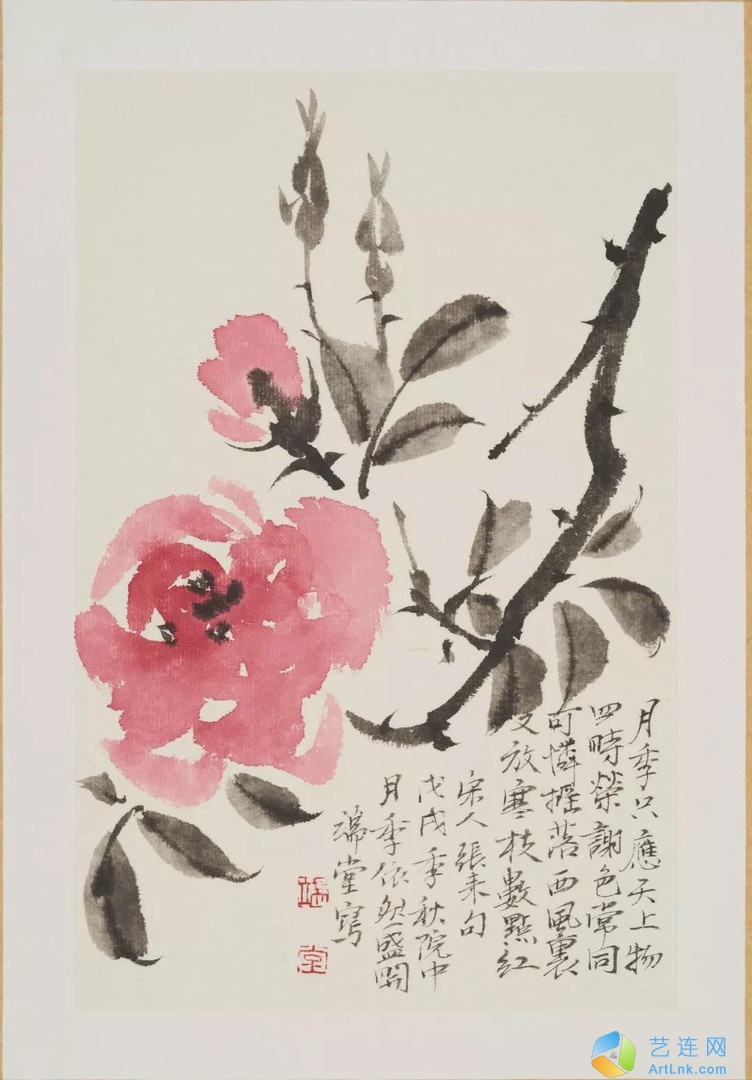 月季只應天上物
四時榮謝色常同
可憐摇落西風裏
又放寒枝數點紅
宋人張耒句
戊戌季秋院中
月季依然盛開
端堂寫
端
堂
艺连网
ArtLnk.com